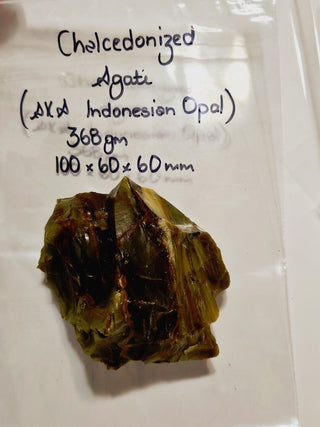 Chalcedonized
Agati
(AKA Indonesian Opal)
368gm
100 x 60 x 60 mm